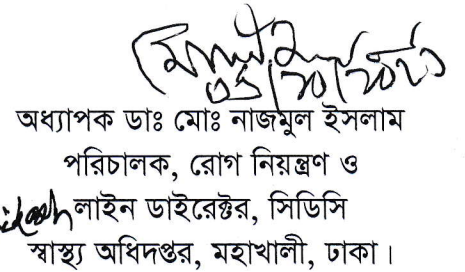 অধ্যাপক ডাঃ মোঃ নাজমুল ইসলাম
পরিচালক, রোগ নিয়ন্ত্রণ ও
লাইন ডাইরেক্টর, সিডিসি
স্বাস্থ্য অধিদপ্তর, মহাখালী, ঢাকা।